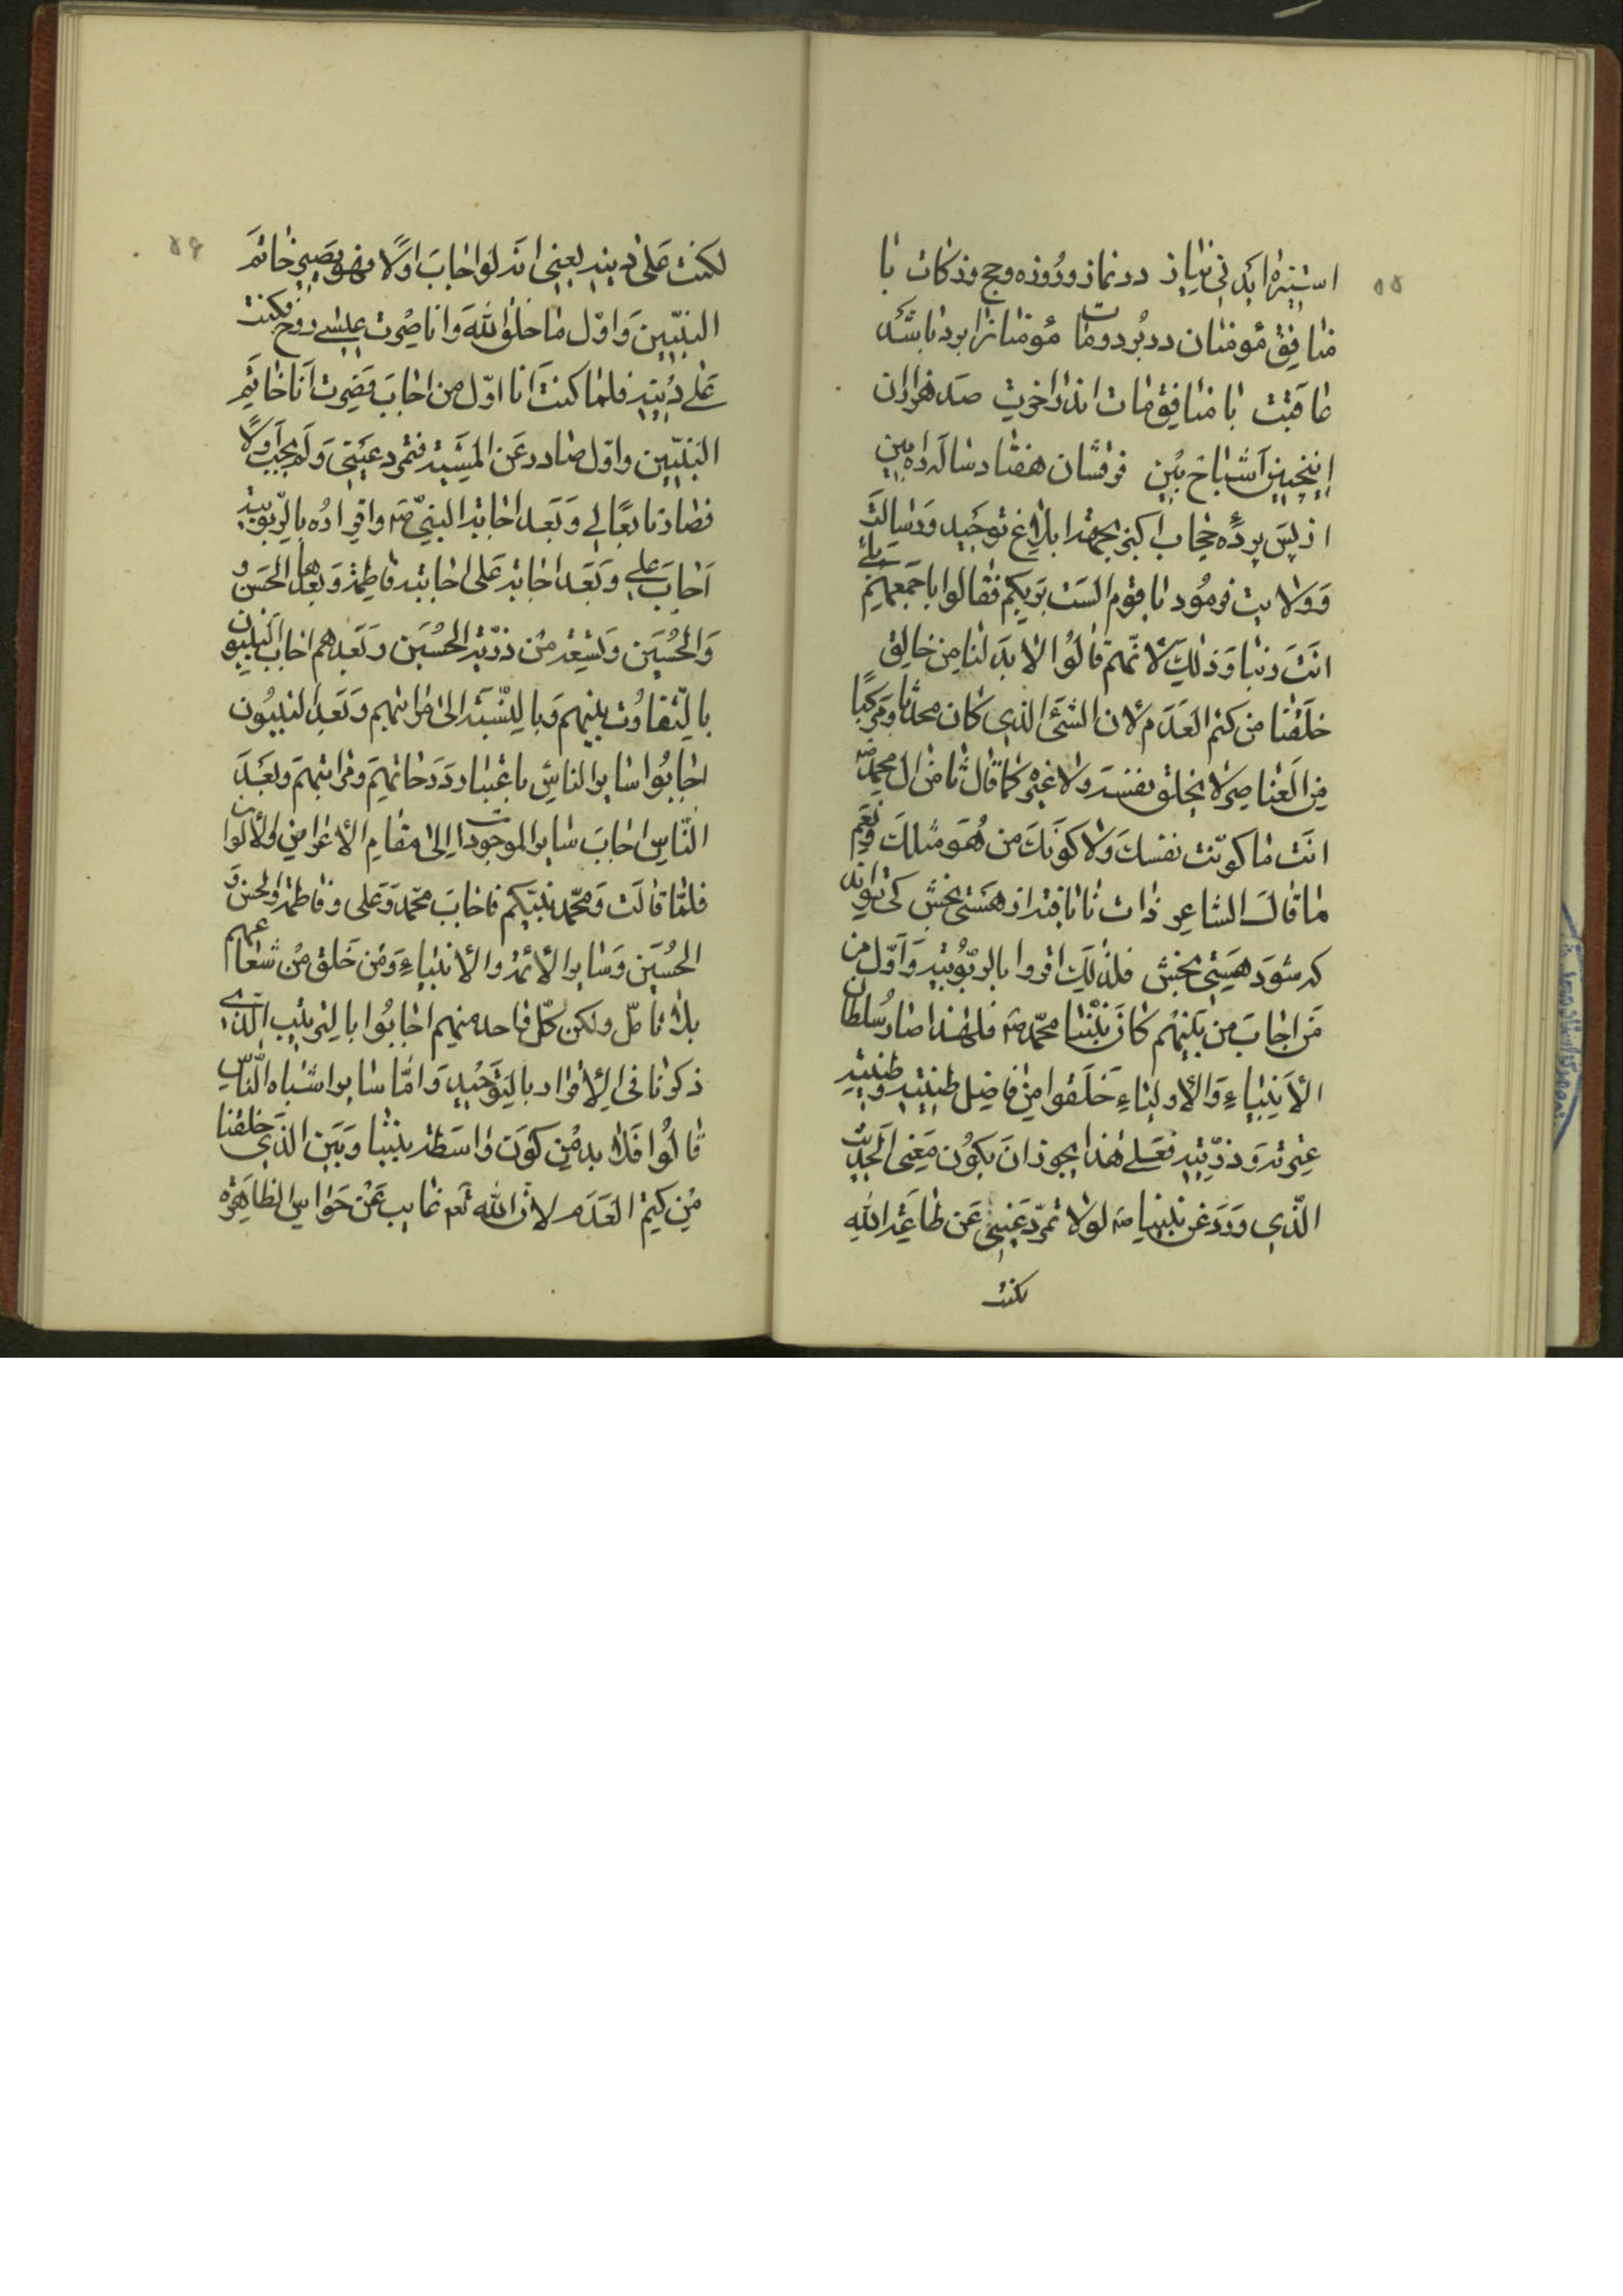 ۵۵
استیزه آید نی نیاز در نماز و روزه و حج و زکات با
منافق مؤمنان در برد و مات مؤمنانرا برد باشد
عاقبت با منافق مات اندر اخرت صد هزاران
اینچنین اشباح بین فرقشان هفتاد ساله راه بین
از پس پرده حجاب اکبر بجهة ابلاغ توحید و رسالت
و ولایت فرمود یا قوم الست بربکم فقالوا باجمعهم بلی
انت ربنا و ذلک لانهم قالوا لا بد لنا من خالق
خلقنا من کتم العدم لان الشئ الذی کان محدثا و مرکبا
من العناصر لا یخلق نفسه ولا غیره کما قال ثامن ال محمد ص
انت ما کونت نفسک ولا کونک من هو مثلک و نعم
ما قال الشاعر ذات نایافته از هستی بخش کی تواند
که شود هستی بخش فلذلک اقروا بالربوبیة و اول من
من اجاب من بینهم کان نبینا محمد ص فلهذا صار سلطان
الأنبیاء و الأولیاء خلقوا من فاضل طینته و طینة
عترته و ذریته فعلی هذا یجوز ان یکون معنی الحدیث
الذی ورد عن نبینا ص لولا تمرد عیسی عن طاعة الله
لکنت
۵۶
لکنت علی دینه یعنی انه لو اجاب اولا فهو یصیر خاتم
النبیین و اول ما خلق الله و انا صرت عیسی روح فکنت
علی دینه فلما کنت انا اول من اجاب فصرت انا خاتم
النبیین و اول صادر عن المشیة فتمرد عیسی و لم یجب اولا
فصار تابعا لی و بعد اجابة النبی ص و اقراره بالربوبیة
اجاب علی و بعد اجابة علی اجابته فاطمة و بعدها الحسن و
و الحسین و تسعة من ذریة الحسین و بعدهم اجاب النبیون
بالتفاوت بینهم و بالنسبة الی مراتبهم و بعد النبیون
اجابوا سایر الناس باعتبار درجاتهم و مراتبهم و بعد
الناس اجاب سایر الموجودات الی مقام الأعراض و الألوان
فلما قالت و محمد نبیکم فاجاب محمد و علی و فاطمة و الحسن و
الحسین و سایر الأئمة و الأنبیاء و من خلق من شعاعهم
بلا تامل ولکن کل واحد منهم اجابوا بالترتیب الذی
ذکرنا فی الإقرار بالتوحید و اما سایر اشباه الناس
قالوا فلا بد من کون واسطة بیننا و بین الذی خلقنا
من کتم العدم لان الله تعم غایب عن حواس الظاهرة